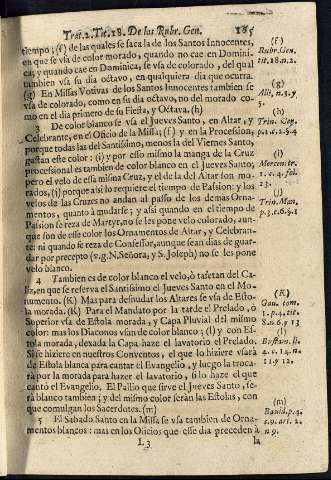 Trat.2.Tit.18. De las Rubr. Gen. 185
tiempo; (f) de las quales se saca la de los Santos Innocentes,
en que se vsa de color morado, quando no cae en Domini-
ca; y quando cae en Dominica, se vsa de colorado, del qual
tambien vsa su dia octavo, en qualquiera dia que ocurra.
(g) En Missas Votivas de los Santos Innocentes tambien se
vsa de colorado, como en su dia octavo, no del morado co-
mo en el dia primero de su Fiesta, y Octava. (h)
3 De color blanco se vsa el Jueves Santo, en Altar, y
Celebrante, en el Oficio de la Missa; (f) y en la Procession,
porque todas las del Santissimo, menos la del Viernes Santo,
gastan este color: (i) y por esso mismo la manga de la Cruz
processional es tambien de color blanco en el Jueves Santo;
pero el velo de essa misma Cruz, y el de la del Altar son mo-
rados, (j) porque assi lo requiere el tiempo de Passion: y los
velos de las Cruzes no andan al passo de los demas Orna-
mentos, quanto à mudarse; y assi quando en el tiempo de
Passion se reza de Martyr, no se les pone velo colorado, aun-
que son de esse color los Ornamentos de Altar, y Celebran-
te: ni quando se reza de Confessor, aunque sean dias de guar-
dar por precepto (v.g. N. Señora, y S. Joseph) no se les pone
velo blanco.
4 Tambien es de color blanco el velo, ò tafetan del Ca-
liz, en que se reserva el Santissimo el Jueves Santo en el Mo-
numento. (K) Mas para desnudar los Altares se vsa de Esto-
la morada. (K) Para el Mandato por la tarde el Prelado, ò
Superior vsa de Estola morada, y Capa Pluvial del mismo
color: mas los Diaconos vsan de color blanco; (l) y con Es-
tola morada, dexada la Capa haze el lavatorio el Prelado.
Si se hiziere en nuestros Conventos, el que lo hiziere vsarà
de Estola blanca para cantar el Evangelio, y luego la troca-
rà por la morada para hazer el lavatorio, si lo haze el que
cantò el Evangelio. El Pallio que sirve el Jueves Santo, se-
rà blanco tambien; y del mismo color seràn las Estolas, con
que comulgan los Sacerdotes. (m)
5 El Sabado Santo en la Missa se vsa tambien de Orna-
mentos blancos: mas en los Oficios que esse dia preceden à
L3 la
(f)
Rubr. Gen.
tit.18.n.2.
(g)
(h)
(i)
(j)
(K)
(l)
(m)